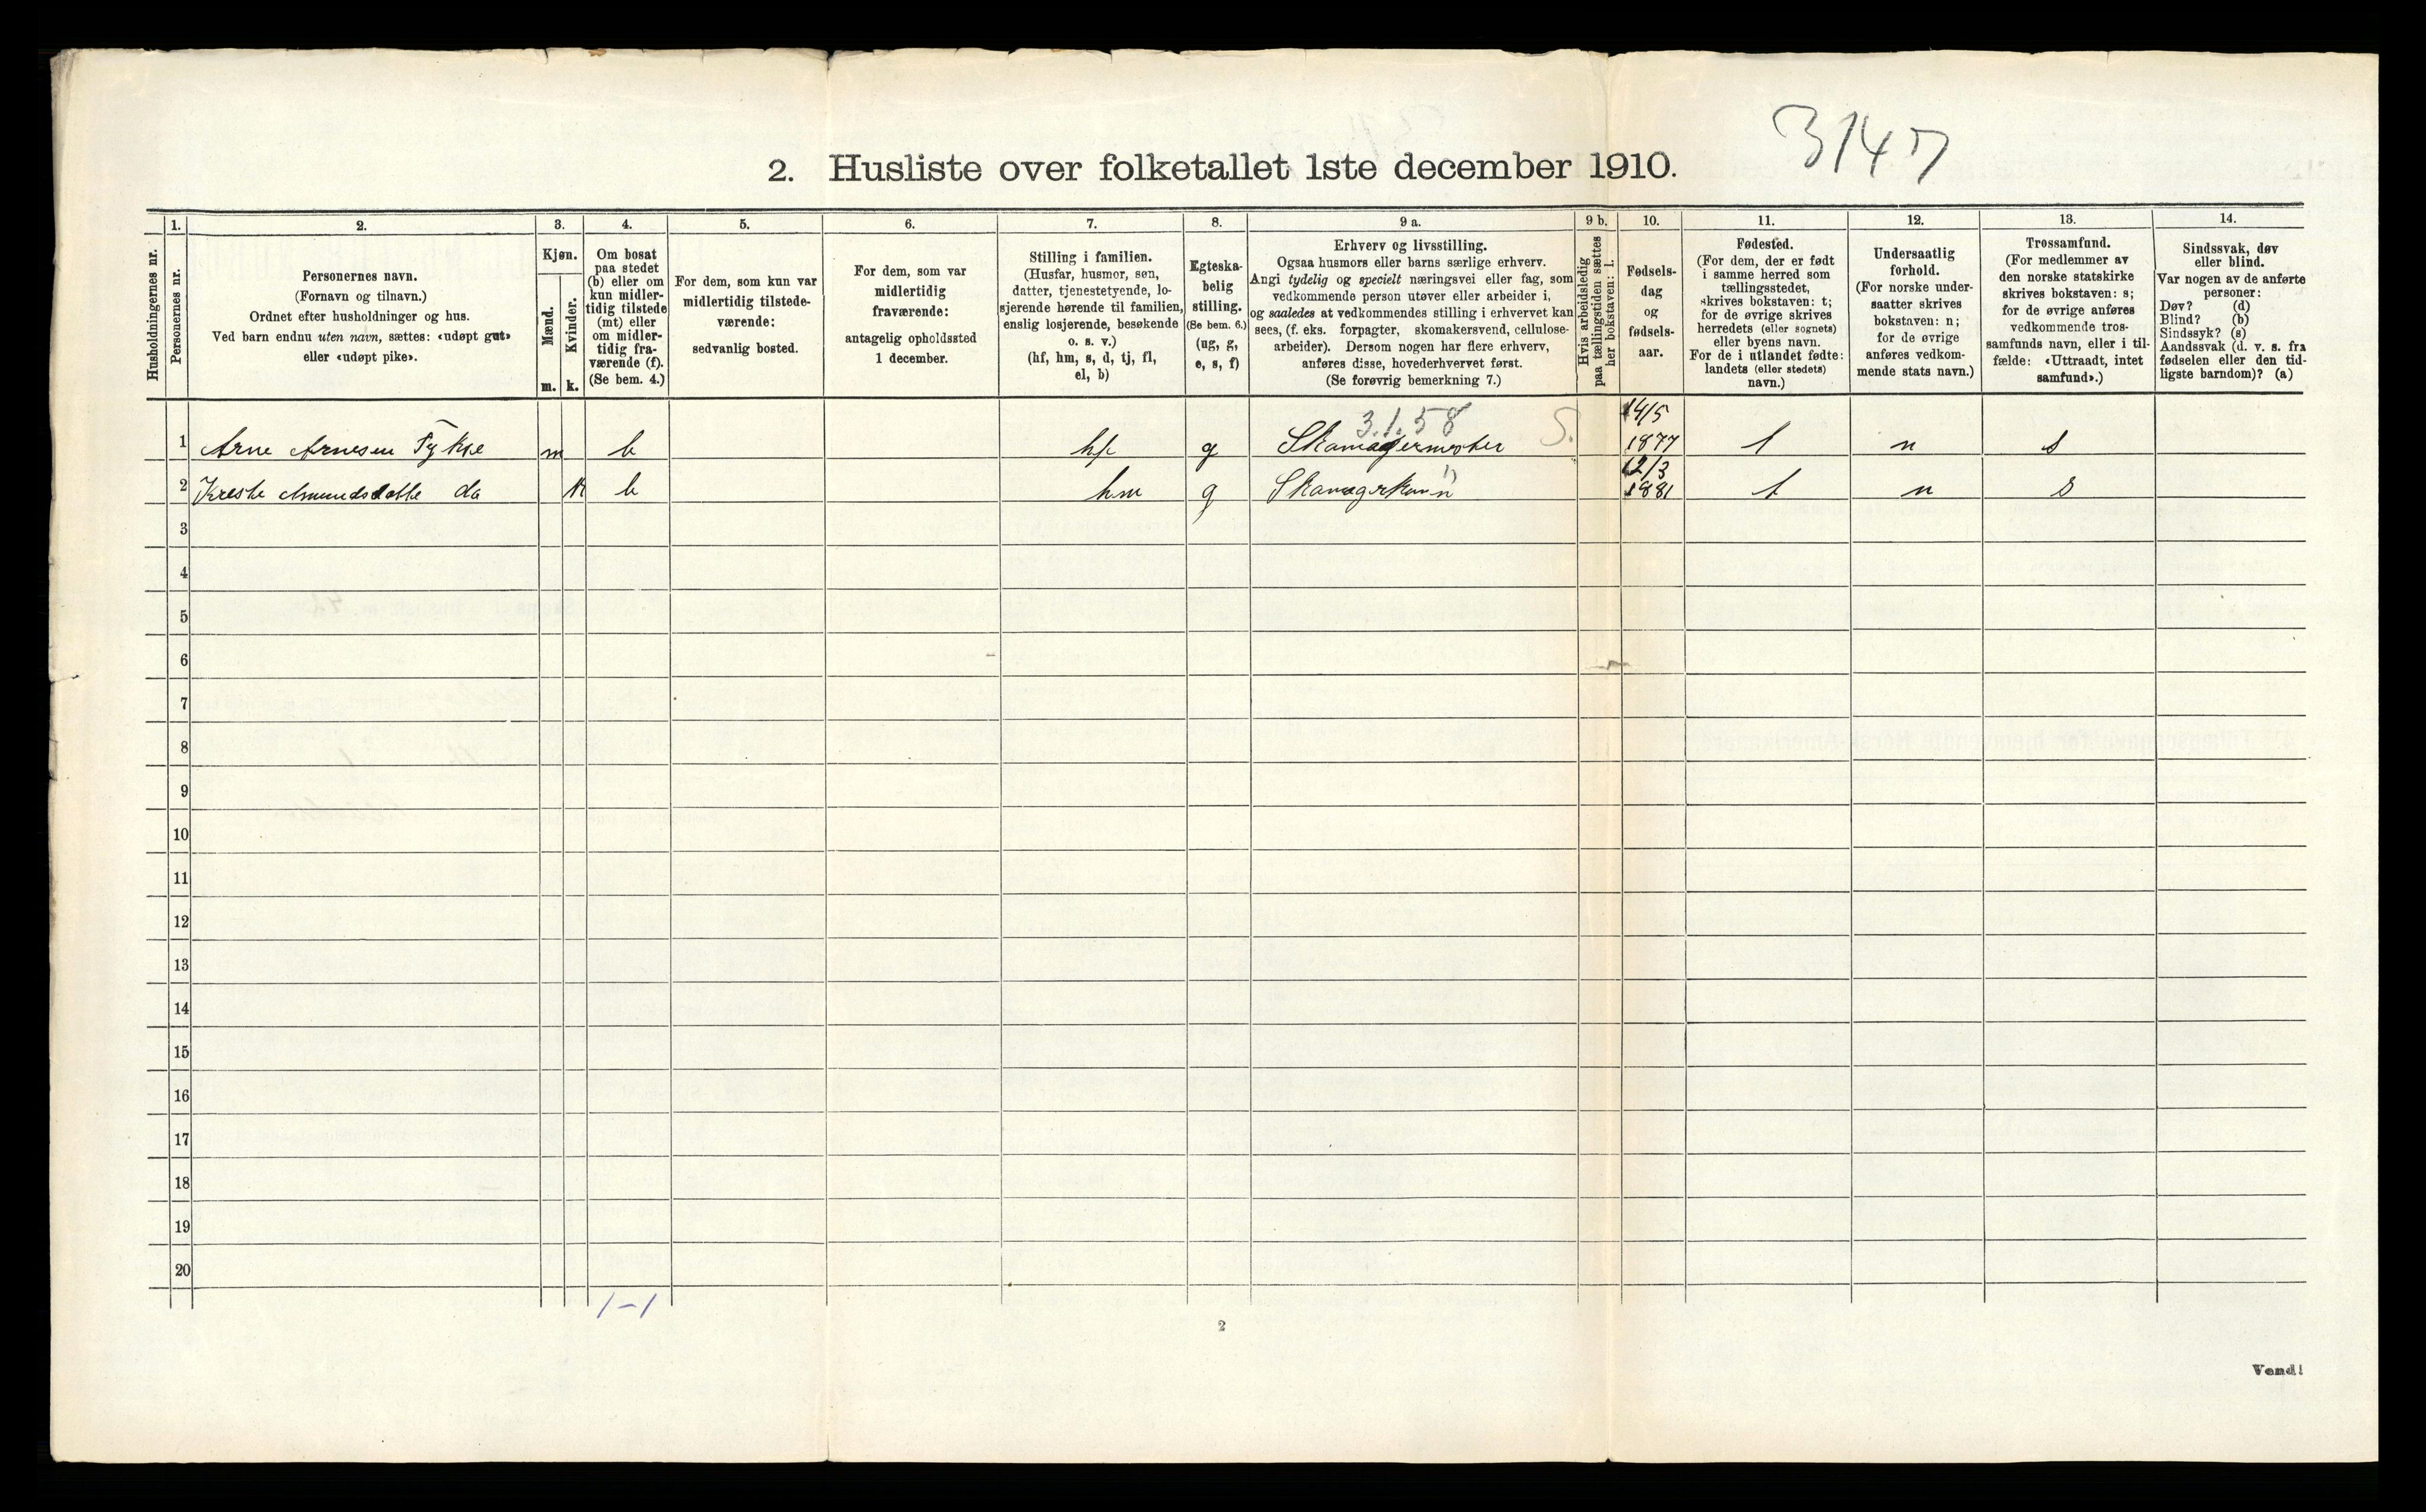 3147
2. Husliste over folketallet 1ste december 1910.
Husholdningernes nr.
1.
Personernes nr.
2.
Personernes navn.
(Fornavn og tilnavn.)
Ordnet efter husholdninger og hus.
Ved barn endnu uten navn, sættes: «udøpt gut»
eller «udøpt pike».
3.
Kjøn.
Mænd.
m.
Kvinder.
k.
4.
Om bosat
paa stedet
(b) eller om
kun midler-
tidig tilstede
(mt) eller
om midler-
tidig fra-
værende (f).
(Se bem. 4.)
5.
For dem, som kun var
midlertidig tilstede-
værende:
sedvanlig bosted.
6.
For dem, som var
midlertidig
fraværende:
antagelig opholdssted
1 december.
7.
Stilling i familien.
(Husfar, husmor, søn,
datter, tjenestetyende, lo-
sjerende hørende til familien,
enslig losjerende, besøkende
o. s. v.)
(hf, hm, s, d, tj, fl,
el, b)
8.
Egteska-
belig
stilling.
(Se bem. 6.)
(ug, g,
e, s, f)
9 a.
Erhverv og livsstilling.
Ogsaa husmors eller barns særlige erhverv.
Angi tydelig og specielt næringsvei eller fag, som
vedkommende person utøver eller arbeider i,
og saaledes at vedkommendes stilling i erhvervet kan
sees, (f. eks. forpagter, skomakersvend, cellulose-
arbeider). Dersom nogen har flere erhverv,
anføres disse, hovederhvervet først.
(Se forøvrig bemerkning 7.)
9 b.
Hvis arbeidsledig
paa tællingstiden sættes
her bokstaven: l.
10.
Fødsels-
dag
og
fødsels-
aar.
11.
Fødested.
(For dem, der er født
i samme herred som
tællingsstedet,
skrives bokstaven: t;
for de øvrige skrives
herredets (eller sognets)
eller byens navn.
For de i utlandet fødte:
landets (eller stedets)
navn.)
12.
Undersaatlig
forhold.
(For norske under-
saatter skrives
bokstaven: n;
for de øvrige
anføres vedkom-
mende stats navn.)
13.
Trossamfund.
(For medlemmer av
den norske statskirke
skrives bokstaven: s;
for de øvrige anføres
vedkommende tros-
samfunds navn, eller i til-
fælde: «Uttraadt, intet
samfund».)
14.
Sindssvak, døv
eller blind.
Var nogen av de anførte
personer:
Døv? (d)
Blind? (b)
Sindssyk? (s)
Aandssvak (d. v. s. fra
fødselen eller den tid-
ligste barndom)? (a)
3.1.58 14/5
1 Arne Arnesen Tykse m b hf g S. 1877 t n s
12/3
2 Amundsdatte do k b hm g 1) 1881 t n s
3
4
5
6
7
8
9
10
11
12
13
14
15
16
17
18
19
20
1-1
2
Vend!